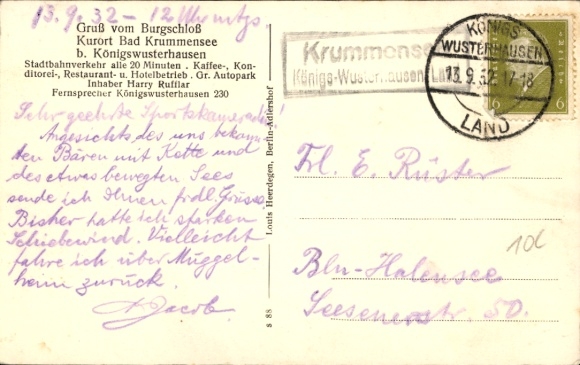 13.9.32 - 12 Uhr mitgs
Gruß vom Burgschloß
Kurort Bad Krummensee
b. Königswusterhausen
Stadtbahnverkehr alle 20 Minuten . Kaffee-, Kon-
ditorei-, Restaurant- u. Hotelbetrieb . Gr. Autopark
Inhaber Harry Rufflar
Fernsprecher Königswusterhausen 230
Sehr geehrte Sportskameradin!
Angesichts des uns bekann-
ten Bären mit Kette und
des etwas bewegten Sees
sende ich Ihnen frdl. Grüsse.
Bisher hatte ich starken
Schiebewind. Vielleicht
fahre ich über Müggel-
heim zurück.
Jacob
Louis Heerdegen, Berlin-Adlershof
s 88
Krummensee
Königs-Wusterhausen Land
KÖNIGS
WUSTERHAUSEN
13.9.32.17-18
LAND
6 6
Frl. E. Rüster
Bln-Halensee
Seesenerstr. 50.